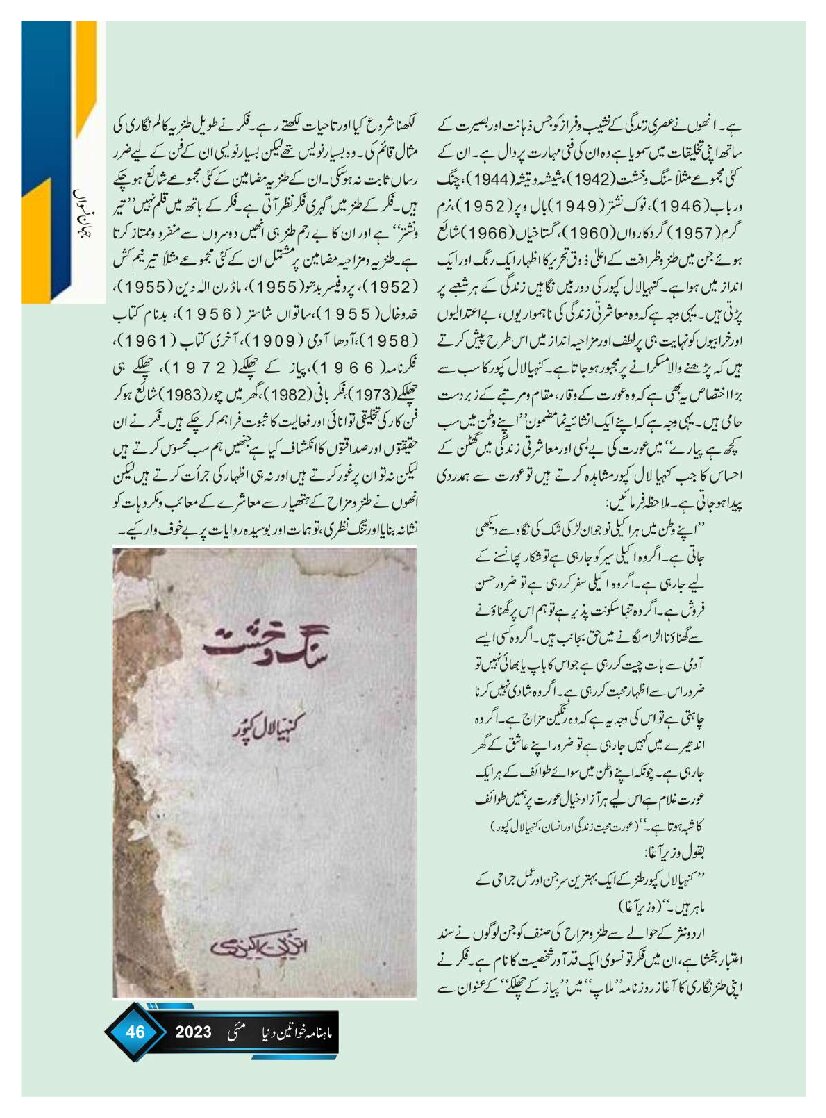 جہان نسواں
ہے۔ انھوں نے عصری زندگی کے نشیب و فراز کو جس ذہانت اور بصیرت کے
ساتھ اپنی تخلیقات میں سمویا ہے وہ ان کی فنی مہارت پر دال ہے۔ ان کے
کئی مجموعے مثلاً سنگ و خشت (1942)، شیشہ و تیشہ (1944)، چنگ
و رباب (1946)، نوک نشتر (1949) بال و پر (1952)، نرم
گرم (1957) گرد کارواں (1960)، گستاخیاں (1966) شائع
ہوئے جن میں طنز و ظرافت کے اعلیٰ ذوق تحریر کا اظہار ایک رنگ اور ایک
انداز میں ہوا ہے۔ کنہیا لال کپور کی دوربیں نگاہیں زندگی کے ہر شعبے پر
پڑتی ہیں۔ یہی وجہ ہے کہ وہ معاشرتی زندگی کی ناہمواریوں، بے اعتدالیوں
اور خرابیوں کو نہایت ہی پر لطف اور مزاحیہ انداز میں اس طرح پیش کرتے
ہیں کہ پڑھنے والا مسکرانے پر مجبور ہو جاتا ہے۔ کنہیا لال کپور کا سب سے
بڑا اختصاص یہ بھی ہے کہ وہ عورت کے وقار، مقام و مرتبے کے زبردست
حامی ہیں۔ یہی وجہ ہے کہ اپنے ایک انشائیہ نما مضمون ’’اپنے وطن میں سب
کچھ ہے پیارے‘‘ میں عورت کی بے بسی اور معاشرتی زندگی میں گھٹن کے
احساس کا جب کنہیا لال کپور مشاہدہ کرتے ہیں تو عورت سے ہمدردی
پیدا ہو جاتی ہے۔ ملاحظہ فرمائیں:
’’اپنے وطن میں ہر اکیلی نوجوان لڑکی شک کی نگاہ سے دیکھی
جاتی ہے۔ اگر وہ اکیلی سیر کو جا رہی ہے تو شکار پھانسنے کے
لیے جا رہی ہے۔ اگر وہ اکیلی سفر کر رہی ہے تو ضرور حسن
فروش ہے۔ اگر وہ تنہا سکونت پذیر ہے تو ہم اس پر گھناؤنے
سے گھناؤنا الزام لگانے میں حق بجانب ہیں۔ اگر وہ کسی ایسے
آدمی سے بات چیت کر رہی ہے جو اس کا باپ یا بھائی نہیں تو
ضرور اس سے اظہار محبت کر رہی ہے۔ اگر وہ شادی نہیں کرنا
چاہتی ہے تو اس کی وجہ یہ ہے کہ وہ رنگین مزاج ہے۔ اگر وہ
اندھیرے میں کہیں جا رہی ہے تو ضرور اپنے عاشق کے گھر
جا رہی ہے۔ چونکہ اپنے وطن میں سوائے طوائف کے ہر ایک
عورت غلام ہے اس لیے ہر آزاد خیال عورت پر ہمیں طوائف
کا شبہ ہوتا ہے۔‘‘ (عورت محبت زندگی اور انسان، کنہیا لال کپور)
بقول وزیر آغا:
’’کنہیا لال کپور طنز کے ایک بہترین سرجن اور عمل جراحی کے
ماہر ہیں۔‘‘ (وزیر آغا)
اردو نثر کے حوالے سے طنز و مزاح کی صنف کو جن لوگوں نے سند
اعتبار بخشا ہے، ان میں فکر تونسوی ایک قد آور شخصیت کا نام ہے۔ فکر نے
اپنی طنز نگاری کا آغاز روزنامہ ’’ملاپ‘‘ میں ’’پیاز کے چھلکے‘‘ کے عنوان سے
لکھنا شروع کیا اور تاحیات لکھتے رہے۔ فکر نے طویل طنزیہ کالم نگاری کی
مثال قائم کی۔ وہ بسیار نویس تھے لیکن بسیار نویسی ان کے فن کے لیے ضرر
رساں ثابت نہ ہو سکی۔ ان کے طنزیہ مضامین کے کئی مجموعے شائع ہو چکے
ہیں۔ فکر کے طنز میں گہری فکر نظر آتی ہے۔ فکر کے ہاتھ میں قلم نہیں ’’تیر
و نشتر‘‘ ہے اور ان کا بے رحم طنز ہی انھیں دوسروں سے منفرد و ممتاز کرتا
ہے۔ طنزیہ و مزاحیہ مضامین پر مشتمل ان کے کئی مجموعے مثلاً تیر نیم کش
(1952)، پروفیسر بدھو (1955)، ماڈرن الہ دین (1955)،
خدوخال (1955)، ساتواں شاستر (1956)، بدنام کتاب
(1958)، آدھا آدمی (1909)، آخری کتاب (1961)،
فکر نامہ (1966)، پیاز کے چھلکے (1972)، چھلکے ہی
چھلکے (1973)، فکر بانی (1982)، گھر میں چور (1983) شائع ہو کر
فن کار کی تخلیقی توانائی اور فعالیت کا ثبوت فراہم کر چکے ہیں۔ فکر نے ان
حقیقتوں اور صداقتوں کا انکشاف کیا ہے جنھیں ہم سب محسوس کرتے ہیں
لیکن نہ تو ان پر غور کرتے ہیں اور نہ ہی اظہار کی جرأت کرتے ہیں لیکن
انھوں نے طنز و مزاح کے ہتھیار سے معاشرے کے معائب و مکروہات کو
نشانہ بنایا اور تنگ نظری، توہمات اور بوسیدہ روایات پر بے خوف وار کیے۔
سنگ و خشت
کنہیا لال کپور
ماہنامہ خواتین دنیا مئی 2023 46